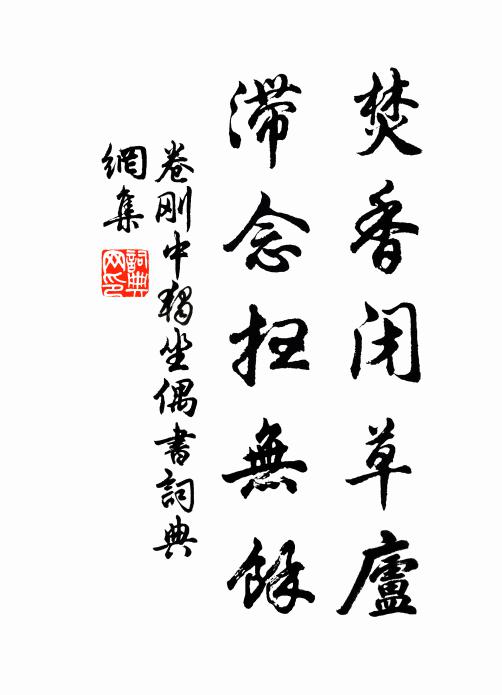 焚香閉草廬
滞念掃無餘
卷剛中獨坐偶書詞典
網集
詞典
网印